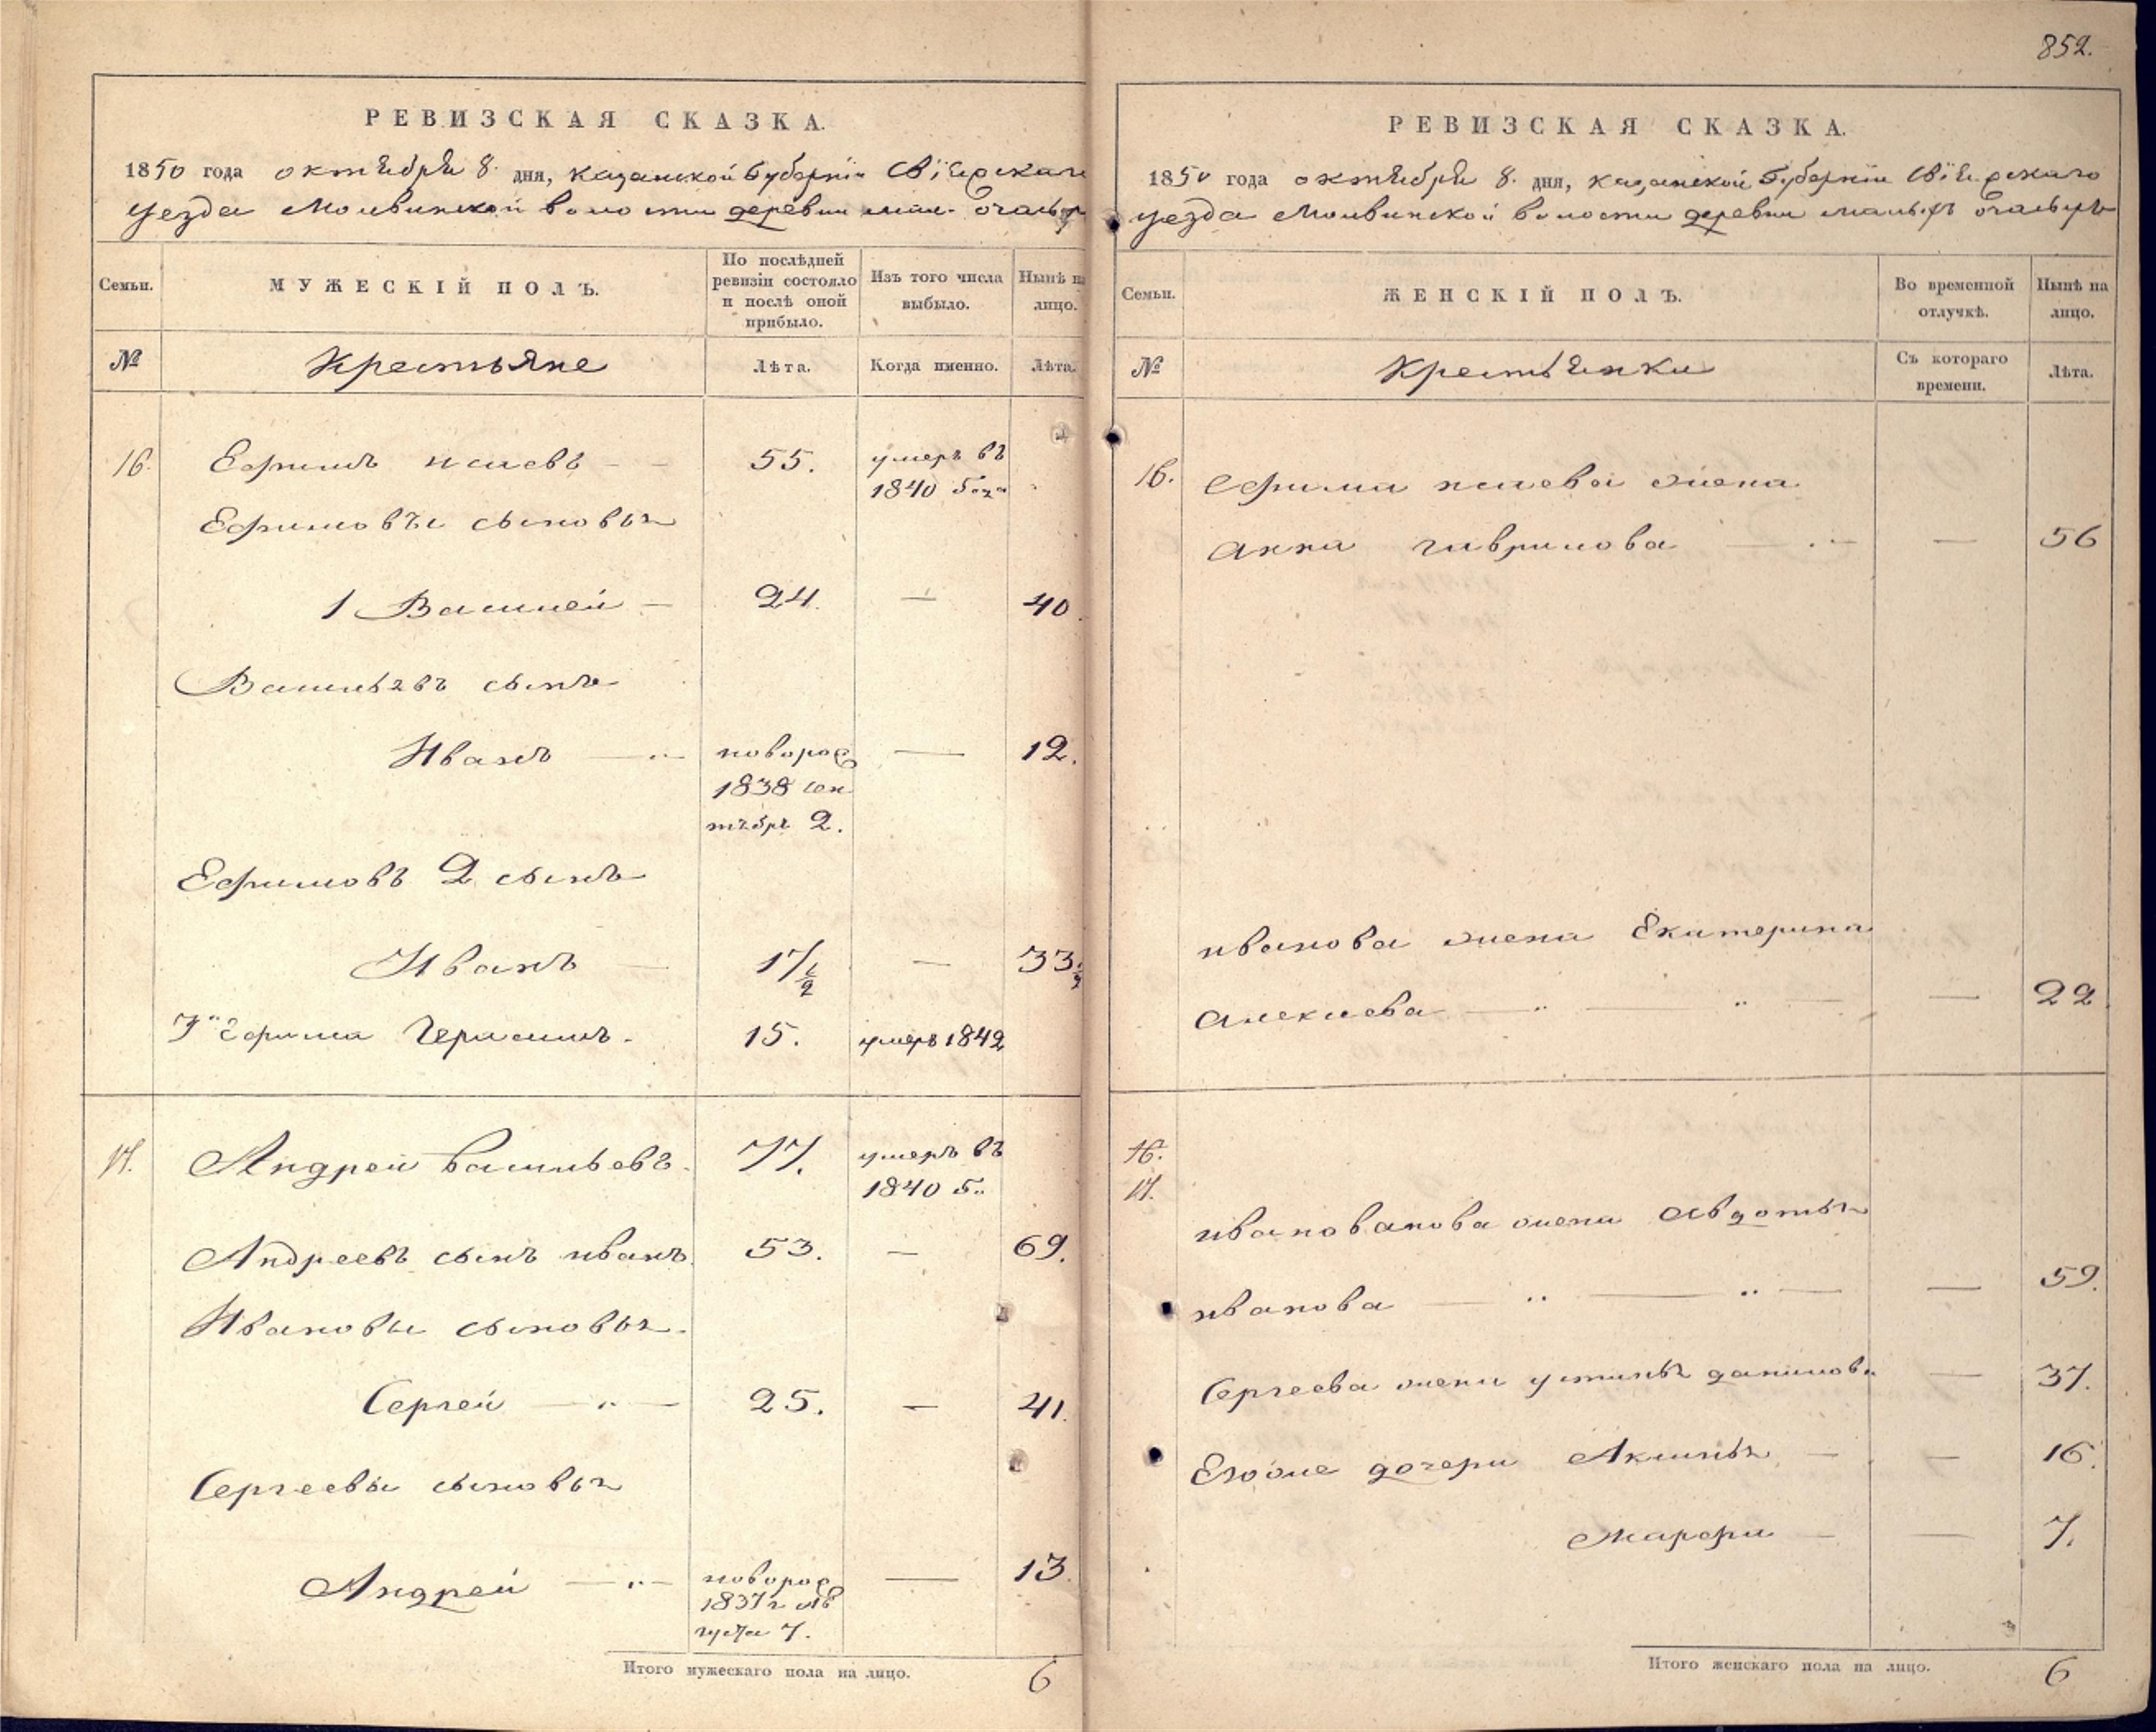 852.
РЕВИЗСКАЯ СКАЗКА.
1850 года октября 8 дня, Казанской Губерніи Свіяжскаго
уезда Молвинской волости деревни
Семьи.
МУЖЕСКІЙ ПОЛЪ.
По послѣдней
ревизіи состояло
и послѣ оной
прибыло.
Изъ того числа
выбыло.
Нынѣ на
лицо.
№
Крестьяне
Лѣта.
Когда именно.
Лѣта.
16.
Ефимъ 55. умеръ въ
1840 года
Ефимовы сыновья
1 Василей 24. — 40.
Васильевъ сынъ
Иванъ новорож 12.
1838 сен
тября 2.
Ефимовъ 2 сынъ
Иванъ 17 1/2 — 33 1/2
3й Ефима Герасимъ. 15. умеръ 1842
17. Андрей Васильевъ. 77. умеръ въ
1840 г.
Андреевъ сынъ иванъ 53. — 69.
Ивановы сыновья.
Сергей 25. — 41.
Сергеевы сыновья
Андрей новорож 13.
1837 г ав
густа 7.
Итого мужескаго пола на лицо. 6
РЕВИЗСКАЯ СКАЗКА.
1850 года октября 8. дня, Казанской Губерніи Свіяжскаго
уезда Молвинской волости деревни малыхъ
Семьи.
ЖЕНСКІЙ ПОЛЪ.
Во временной
отлучкѣ.
Нынѣ на
лицо.
№
Крестьянки
Съ котораго
времени.
Лѣта.
16. Ефима жена
анна гаврилова — 56
иванова жена Екатерина
Алексиева — 22
16.
17.
ивановакова жена Авдотья
иванова — 59.
Сергеева жена устинья данилова — 37.
Егоже дочери Аксинья — 16.
Марфа — 7.
Итого женскаго пола на лицо. 6